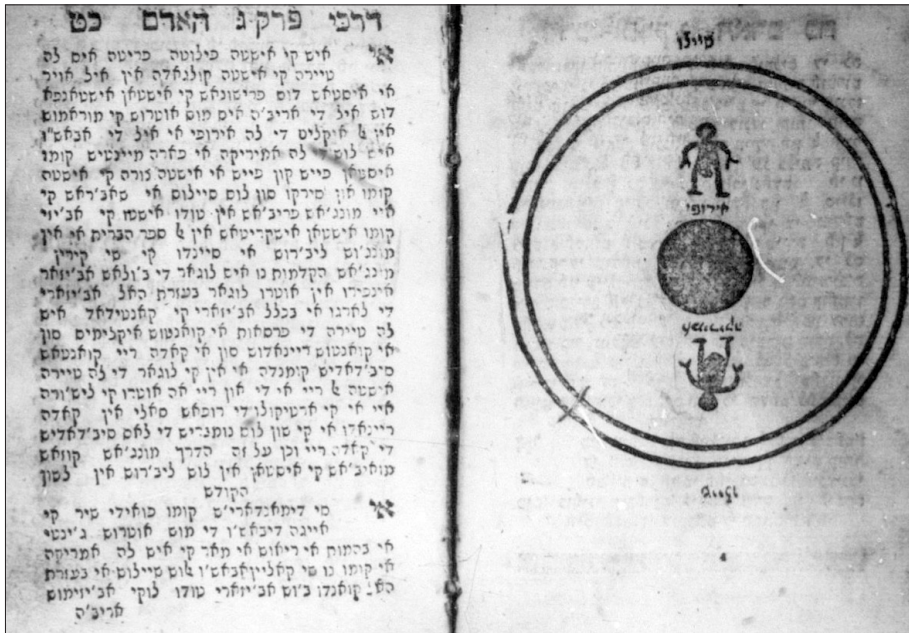 דרכי פרק ג האדם כט
אי איש קי אישטה פילוטה פריטה איס לה
טיירה קי אישטה קולגאדה אין איל אויר
אי איסטאש לוס פרישונאש קי אישטאן אישטאנפא
דוש איל די אריב'ה איס מוס אוטרוש קי מוראמוש
אין ﭏ איקליס די לה אירופי אי איל די אבאש"ו
איש לוש די לה אמיריקה אי פארה מיינטיש קומו
איסטאן פייש קון פייש אי אישטה גורה קי אישטה
קומו און סירקו סון לוס סיילוס אי סאב'ראש קי
איי מונג'אש פריב'אש אין טודו אישטו קי אב'יזי
קומו אישטאן אישקריטאש אין ﭏ ספר הברית אי אין
מונג'וש ליב'רוש אי סיינדו קי שי קירין
מונג'אש הקלמות נו איש לוגאר די ב'ולאש אב'יזאר
אינפידו אין אוטרו לוגאר בעזרת האל אב'יזארי
די לארגו אי בכלל אב'יזארי קי קאנטידאל איש
לה טיירה די פרסאות אי קואנטוש איקלימיס סון
אי קואנטוש ריינאדוש סון אי קאדה ריי קואנטאש
סיב'דאדיש קומנדה אי אין קי לוגאר די לה טיירה
אישטה ﭏ ריי אי די און ריי אה אוטרו קי ליש'ורה
איי אי קי ארטיקולו די רופאש סאלי אין קאדה
ריינאדו אי קי סון לוס נומבריש די לאס סיב'דאדיש
די קאדה ריי וכן על זה הדרך מונג'אש קוזאש
מואיב'אש קי אישטאן אין לוש ליב'רוש אין לשון
הקודש
אי סי דימאנדארי'ש קומו פואידי שיר קי
אייגה דיבאש'ו די מוס אוטרוש ג'ינטי
אי בהמות אי ריאוש אי מאר קי איש לה אמריקה
אי קומו נו שי קאליין אבאש'ו ﭏוש סיילוש אי בעזרת
האל קואנדו ב'וש אב'יזארי טודו לוקי אב'יזימוש
אריב'ה
סיילו
אירופי
סיילו